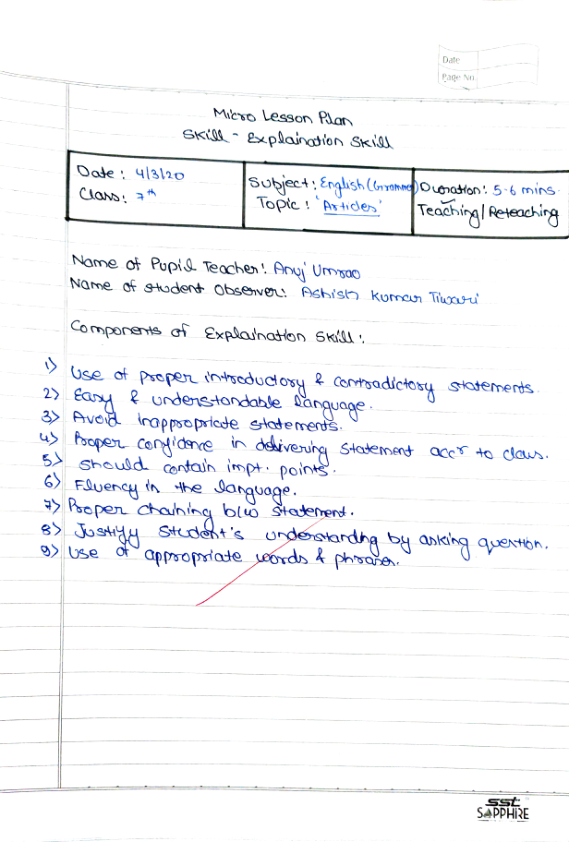 Date
Page No.
Micro Lesson Plan
Skill - Explaination Skill
Date : 4/3/20
Class : 7th
Subject : English (Grammer)
Topic : 'Articles'
Duration : 5-6 mins.
Teaching / Reteaching
Name of Pupil Teacher : Anuj Umrao
Name of student Observer : Ashish Kumar Tiwari
Components of Explaination Skill :
1) Use of proper introductory & contradictory statements.
2) Easy & understandable language.
3) Avoid inappropriate statements.
4) Proper confidence in delivering statement accr to class.
5) Should contain impt. points.
6) Fluency in the language.
7) Proper chaining b/w statement.
8) Justify student's understanding by asking question.
9) Use of appropriate words & phrases.
sst
SAPPHIRE